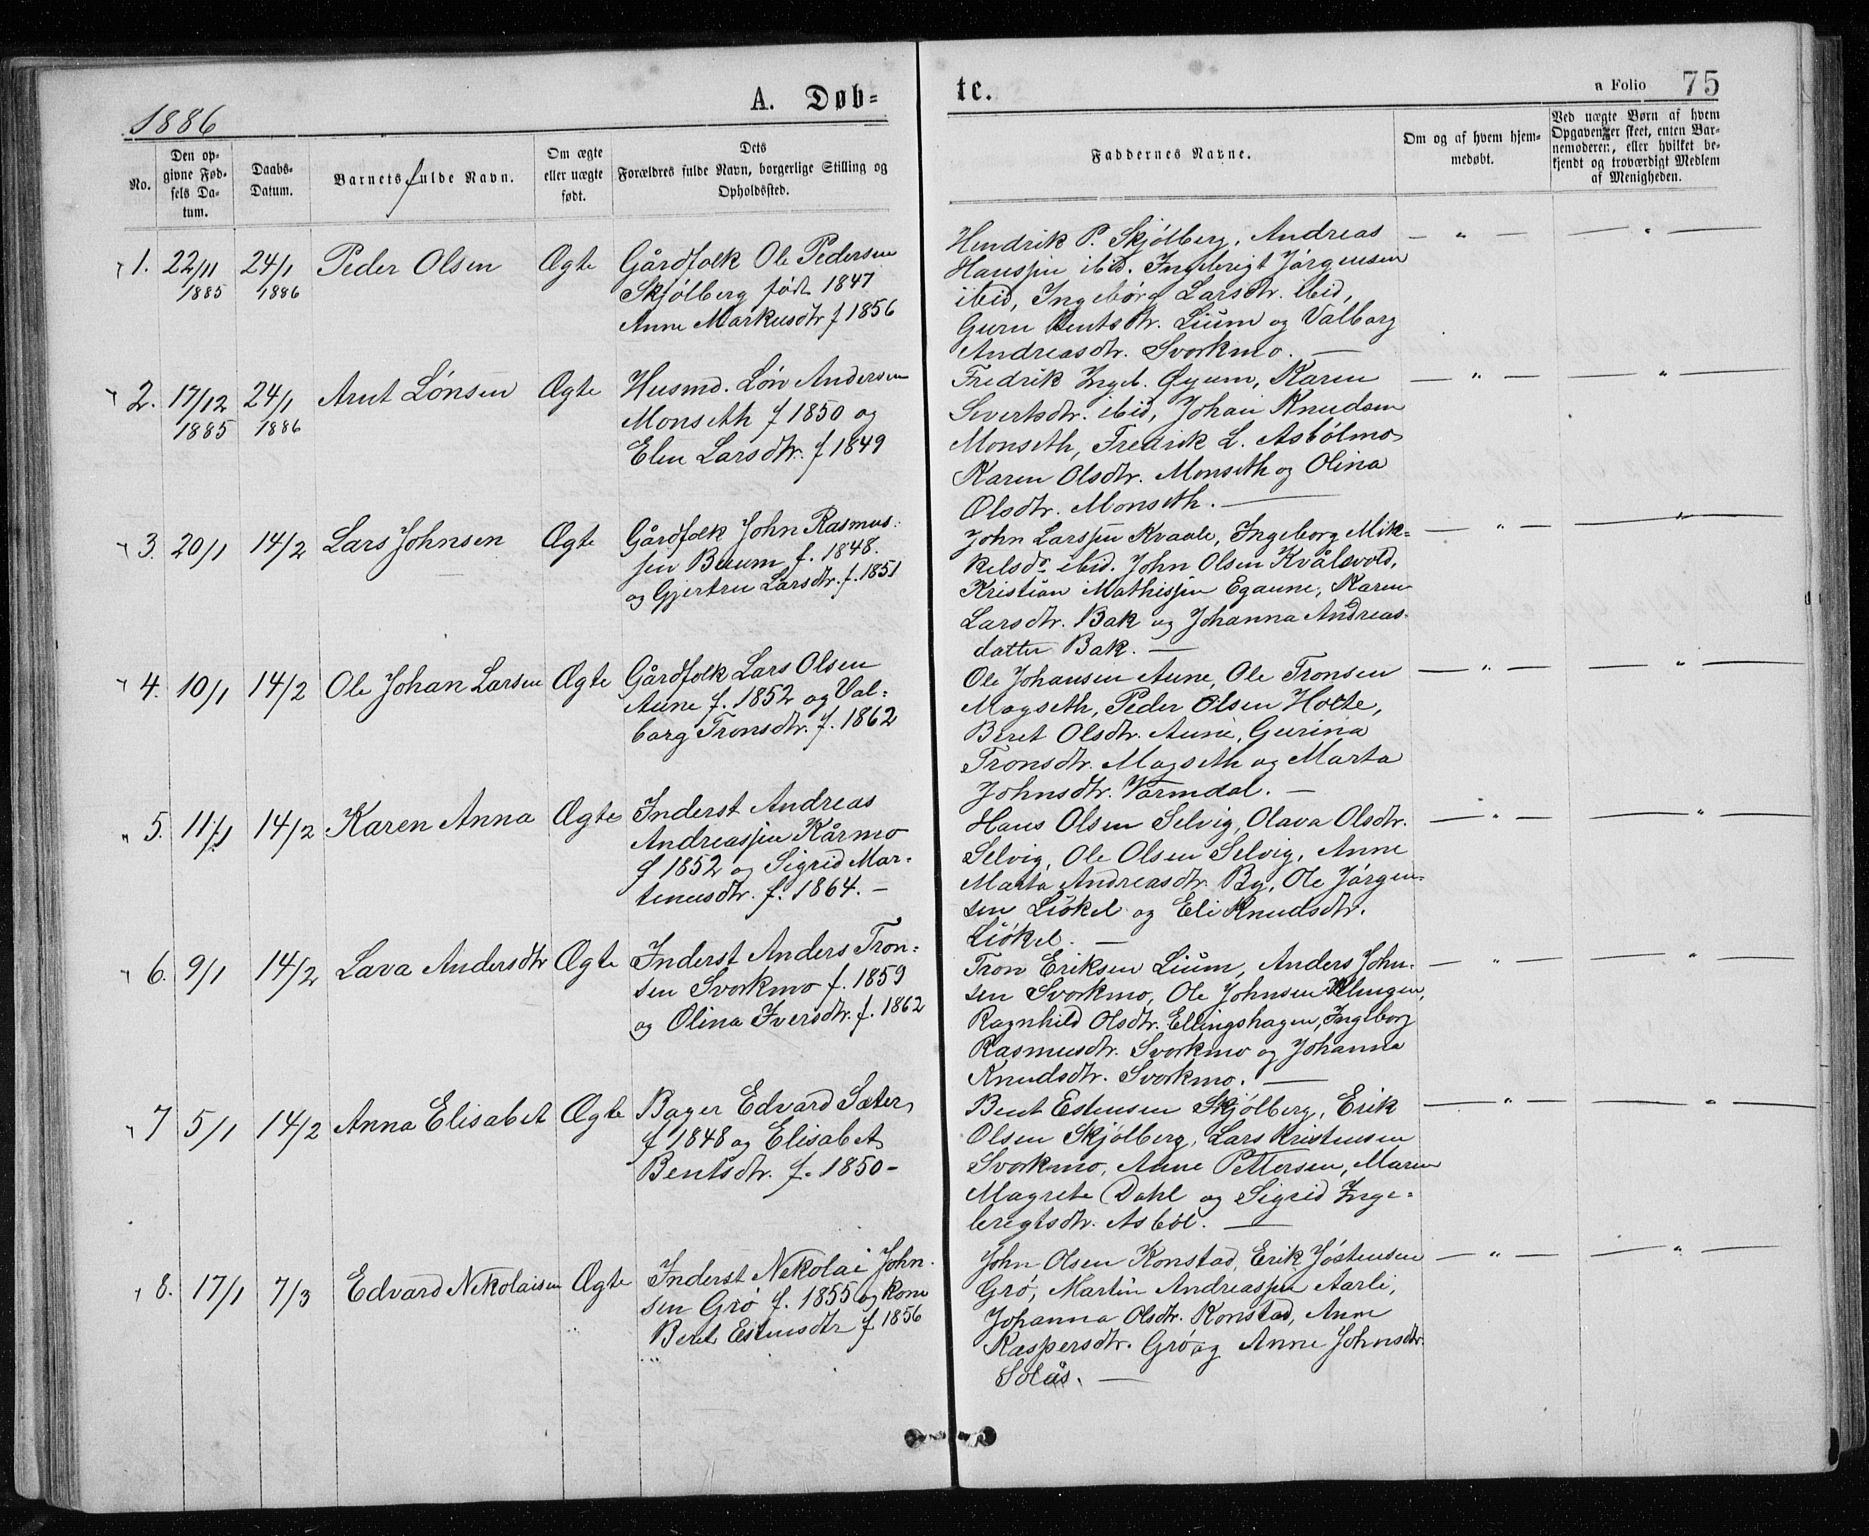 1886
A. Døb-
te.
a Folio 75
No.
Den op-
givne Fød-
sels Da-
tum.
Daabs-
Datum.
Barnets fulde Navn.
Om ægte
eller uægte
født.
Dets
Forældres fulde Navn, borgerlige Stilling og
Opholdssted.
Faddernes Navne.
Om og af hvem hjem-
medøbt.
Ved uægte Børn af hvem
Opgaven er skeet, enten Bar-
nemoderen, eller hvilket be-
kjendt og troværdigt Medlem
af Menigheden.
1. 22/11 1885
24/1 1886
Peder Olsen
Ægte
Gårdfolk Ole Pedersen
Skjølberg født 1847
Anne Markusdtr f 1856
Hendrik P. Skjølberg, Andreas
Hanssen ibid. Ingebrigt Jørgensen
ibid, Ingebørg Larsdtr. ibid,
Guru Bentsdtr. Lium og Valborg
Andreasdtr. Svorkmo. —
— " —
— " —
2. 17/12 1885
24/1 1886
Arnt Lønsen
Ægte
Husmd. Løn Andersen
Monseth f 1850 og
Elen Larsdtr. f 1849
Fredrik Ingeb. Øyum, Karen
Sivertsdtr. ibid, Johan Knudsen
Monseth, Fredrik L. Asbølmo
Karen Olsdtr. Monseth og Olina
Olsdtr. Monseth. —
— " —
— " —
3. 20/1
14/2
Lars Johnsen
Ægte
Gårdfolk John Rasmus-
sen Buum f. 1848.
og Gjertru Larsdtr. f. 1851
John Larssen Kvaale, Ingeborg Mik-
kelsdr ibid. John Olsen Kvålsvold,
Kristian Mathissen Egaune, Karen
Larsdtr. Bak og Johanna Andreas-
datter Bak. —
— " —
— " —
4. 10/1
14/2
Ole Johan Larsen
Ægte
Gårdfolk Lars Olsen
Aune f. 1852 og Val-
borg Tronsdtr. f. 1862
Ole Johansen Aune, Ole Tronsen
Mogseth, Peder Olsen Holte,
Beret Olsdtr. Aune, Gurina
Tronsdtr. Mogseth og Marta
Johnsdtr. Vormdal. —
— " —
— " —
5. 11/1
14/2
Karen Anna
Ægte
Inderst Andreas
Andreassen Kårmo
f 1852 og Sigrid Mar-
tinusdtr. f. 1864. —
Hans Olsen Selvig, Olava Olsdtr.
Selvig, Ole Olsen Selvig, Anne
Marta Andreasdtr. By, Ole Jørgen-
sen Liøkel og Eli Knudsdtr.
Liøkel. —
— " —
— " —
6. 9/1
14/2
Lava Andersdtr
Ægte
Inderst Anders Tron-
sen Svorkmo f. 1859
og Olina Iversdtr. f. 1862
Tron Eriksen Lium, Anders John-
sen Svorkmo, Ole Johnsen
Ragnhild Olsdtr. Ellingshagen, Ingeborg
Rasmusdtr. Svorkmo og Johanna
Knudsdtr. Svorkmo. —
— " —
— " —
7 5/1
14/2
Anna Elisabet
Ægte
Bager Edvard Sæter
f 1848 og Elisabet
Bentsdtr. f. 1850 —
Bent Estensen Skjølberg, Erik
Olsen Skjølberg, Lars Kristensen
Svorkmo, Anne Pettersen, Maren
Magrete Dahl og Sigrid Inge-
brigtsdtr. Asbøl. —
— " —
— " —
8. 17/1
7/3
Edvard Nikolaisen
Ægte
Inderst Nikolai John-
sen Grø f. 1855 og kone
Beret Estensdtr f 1856
John Olsen Konstad, Erik Jøstensen
Grø, Martin Andreassen Aarli,
Johanna Olsdtr. Konstad, Anne
Kaspersdtr. Grø og Anne Johnsdtr.
Solås. —
— " —
— " —